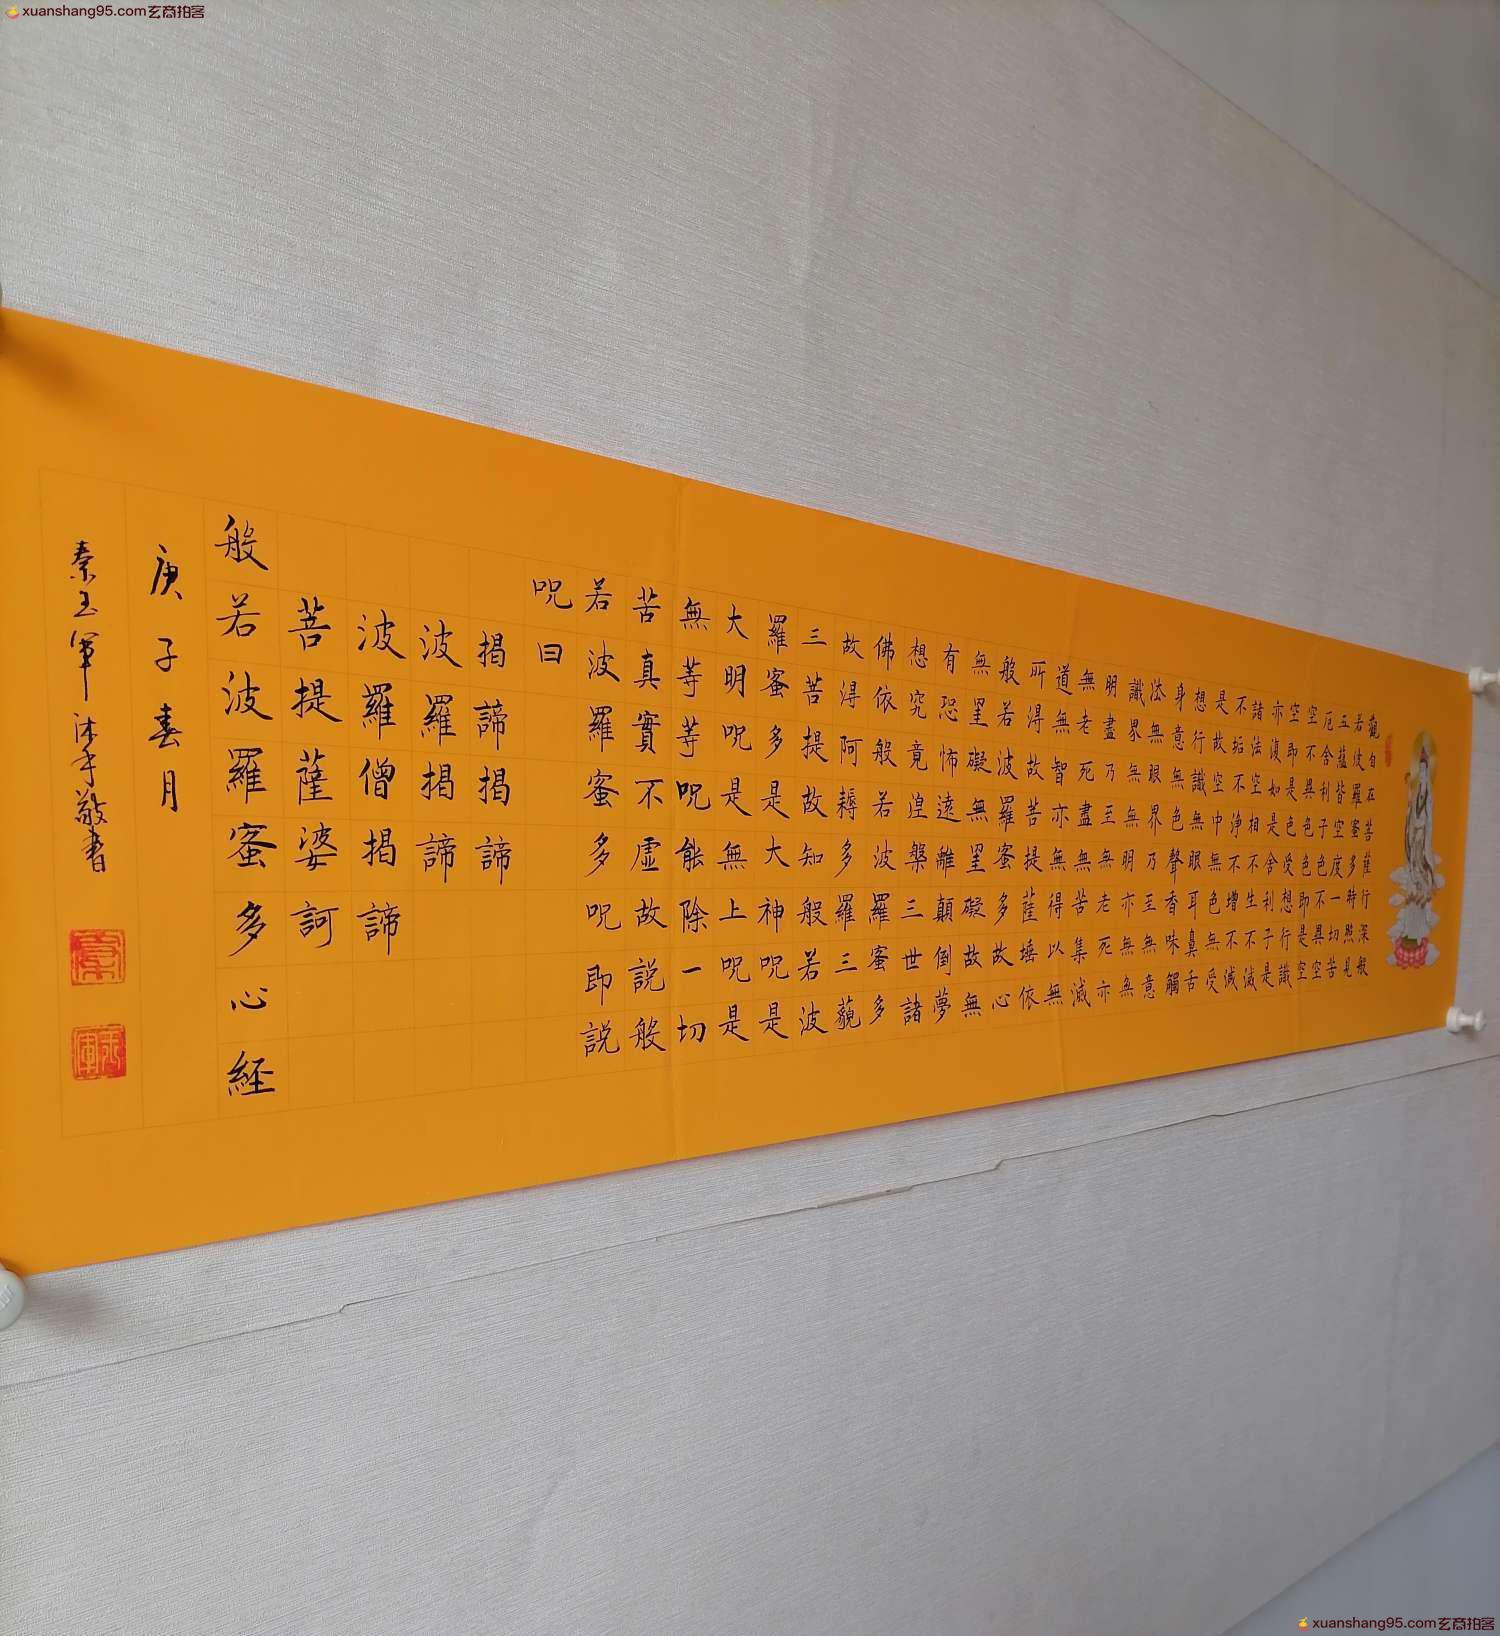 xuanshang95.com玄商拍客
觀自在菩薩行深般
若波羅蜜多時照見
五蘊皆空度一切苦
厄舍利子色不異空
空不異色色即是空
空即是色受想行識
亦復如是舍利子是
諸法空相不生不滅
不垢不淨不增不減
是故空中無色無受
想行識無眼耳鼻舌
身意無色聲香味觸
法無眼界乃至無意
識界無無明亦無無
明盡乃至無老死亦
無老死盡無苦集滅
道無智亦無得以無
所得故菩提薩埵依
般若波羅蜜多故心
無罣礙無罣礙故無
有恐怖遠離顛倒夢
想究竟涅槃三世諸
佛依般若波羅蜜多
故得阿耨多羅三藐
三菩提故知般若波
羅蜜多是大神呪是
大明呪是無上呪是
無等等呪能除一切
苦真實不虛故説般
若波羅蜜多呪即説
呪曰
揭諦揭諦
波羅揭諦
波羅僧揭諦
菩提薩婆訶
般若波羅蜜多心経
庚子春月
秦玉軍沐手敬書
xuanshang95.com玄商拍客